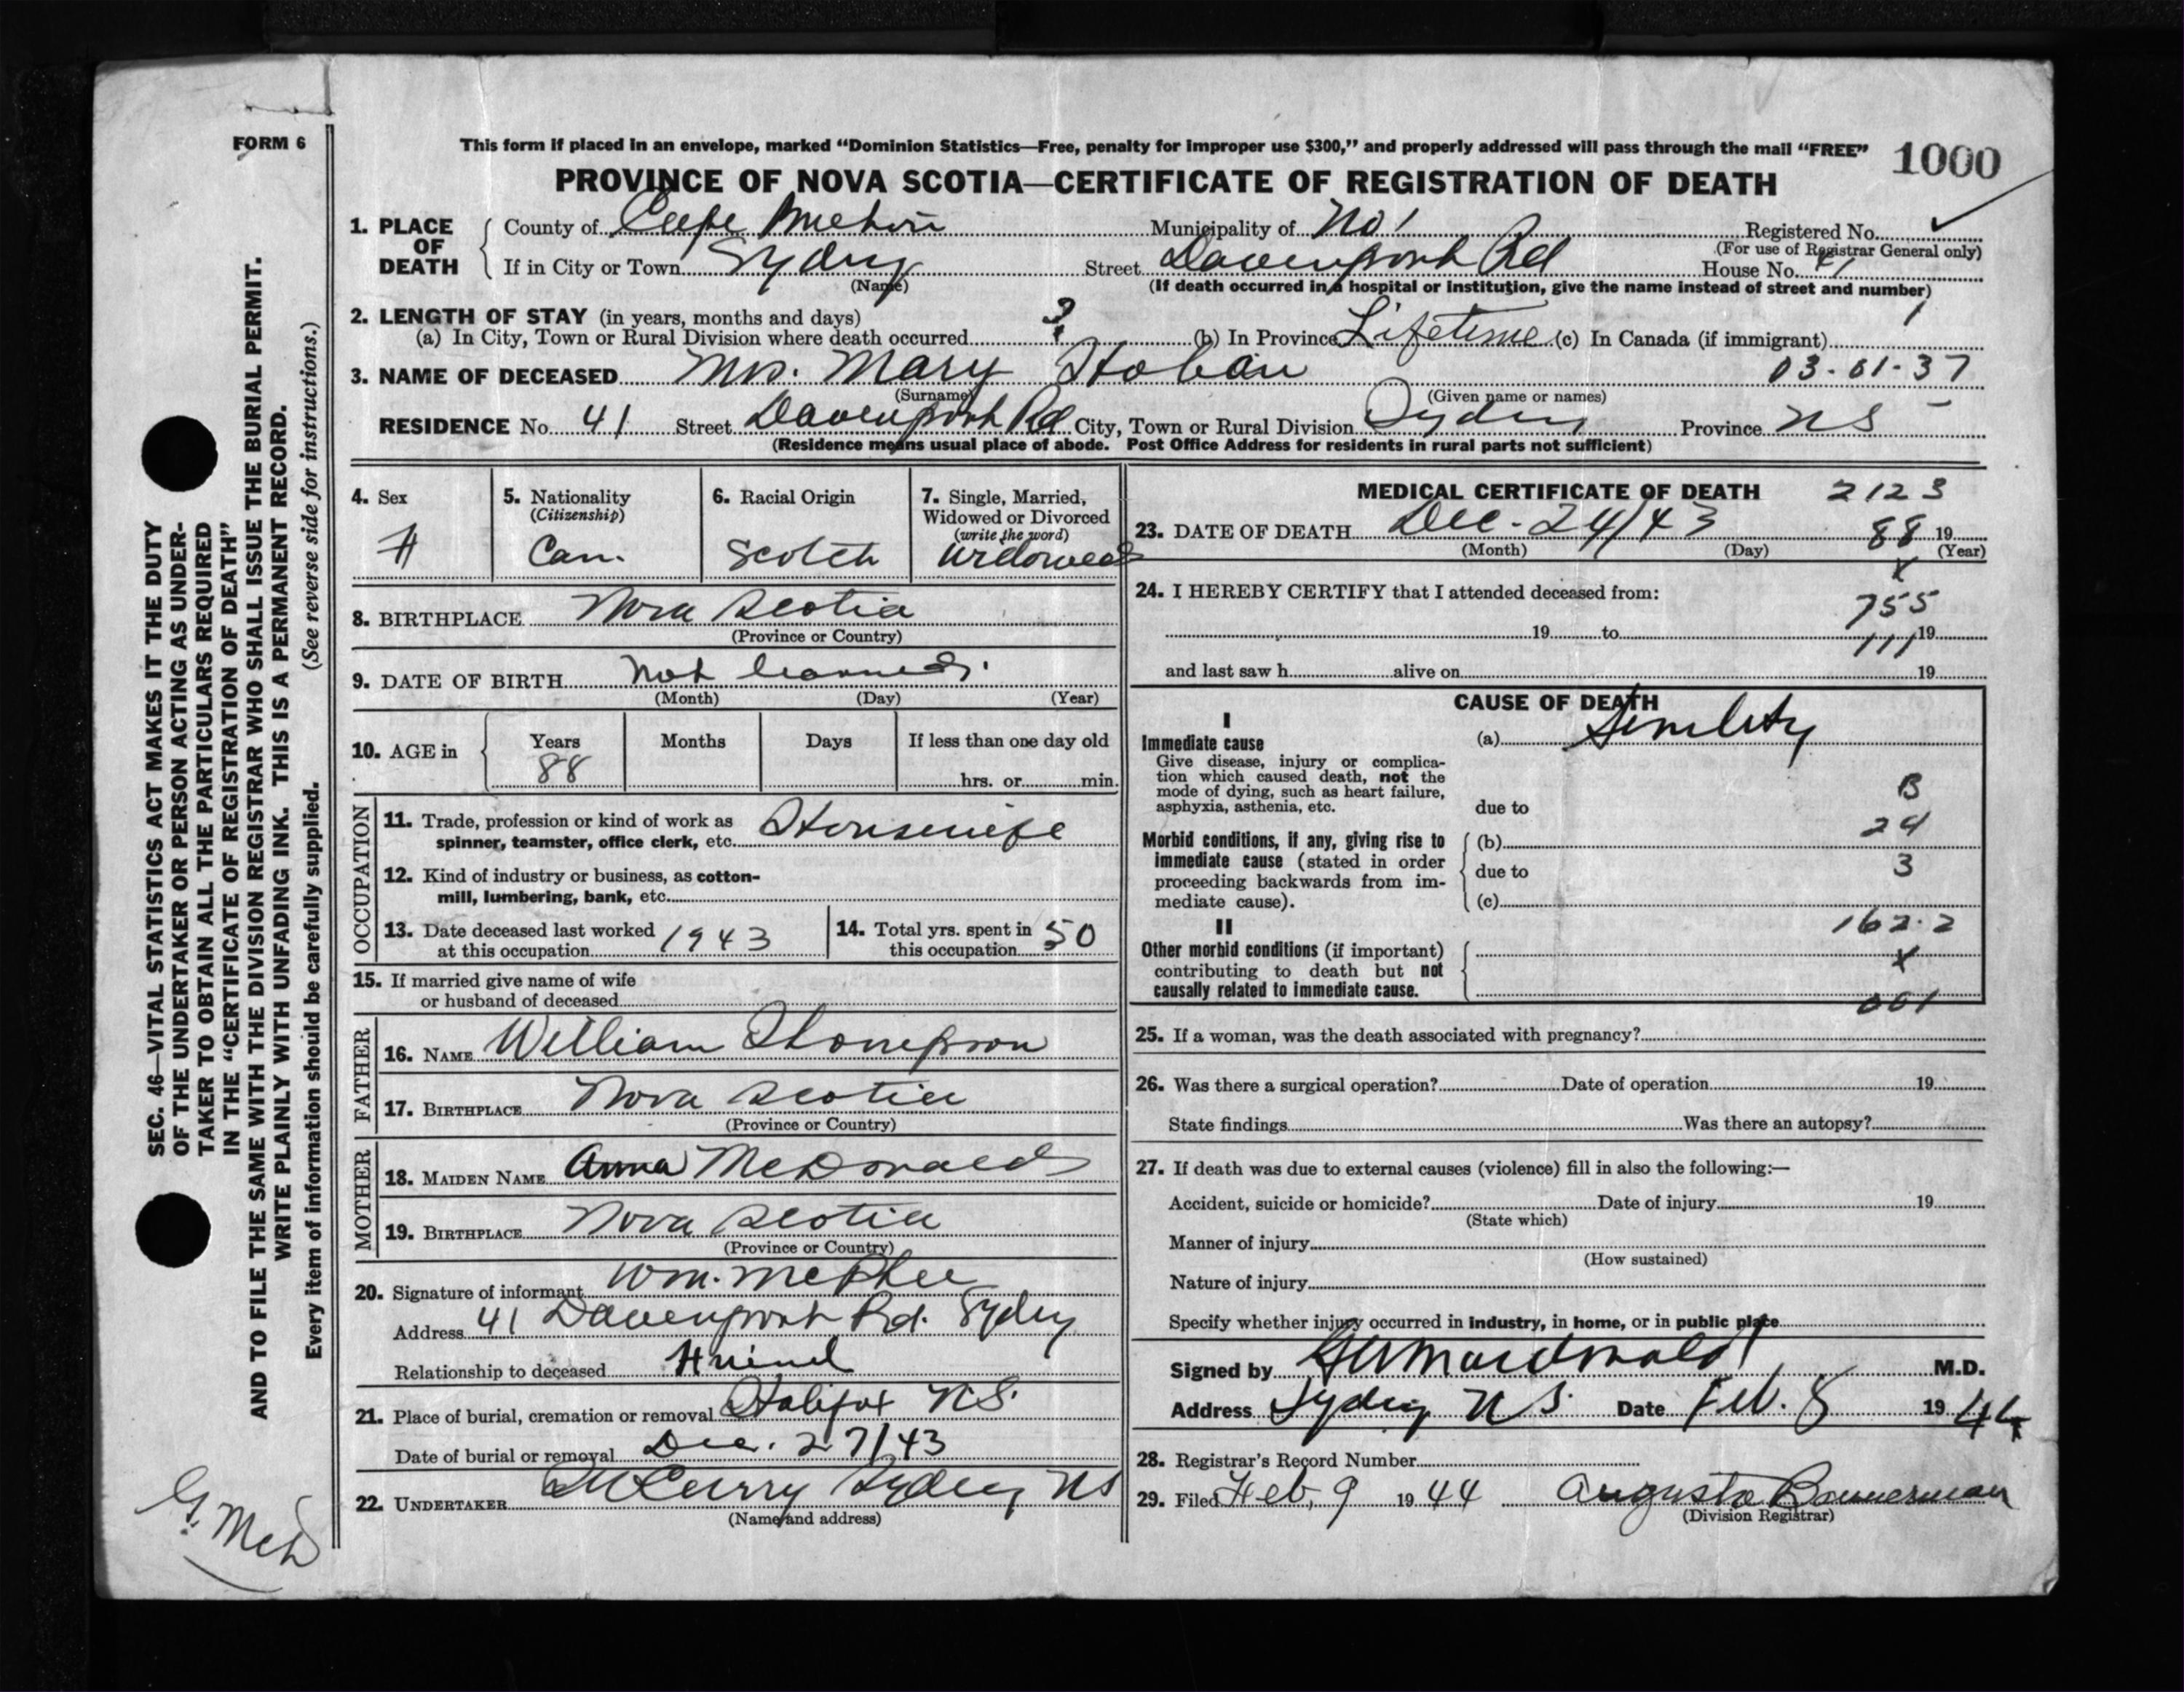 FORM 6
This form if placed in an envelope, marked “Dominion Statistics—Free, penalty for improper use $300,” and properly addressed will pass through the mail “FREE”
1000
PROVINCE OF NOVA SCOTIA—CERTIFICATE OF REGISTRATION OF DEATH
1. PLACE OF DEATH
County of Cape Breton Municipality of No 1 Registered No.
(For use of Registrar General only)
If in City or Town Sydney Street Davenport Rd House No. 41
(Name) (If death occurred in a hospital or institution, give the name instead of street and number)
2. LENGTH OF STAY (in years, months and days) 1
(a) In City, Town or Rural Division where death occurred ? (b) In Province Lifetime (c) In Canada (if immigrant)
3. NAME OF DECEASED Mrs. Mary Hoban 03-01-37
(Surname) (Given name or names)
RESIDENCE No. 41 Street Davenport Rd City, Town or Rural Division Sydney Province NS
(Residence means usual place of abode. Post Office Address for residents in rural parts not sufficient)
4. Sex
F
5. Nationality
(Citizenship)
Can.
6. Racial Origin
Scotch
7. Single, Married,
Widowed or Divorced
(write the word)
Widowed
8. BIRTHPLACE Nova Scotia
(Province or Country)
9. DATE OF BIRTH Not learned.
(Month) (Day) (Year)
10. AGE in
Years Months Days If less than one day old
88 hrs. or min.
OCCUPATION
11. Trade, profession or kind of work as
spinner, teamster, office clerk, etc. Housewife
12. Kind of industry or business, as cotton-
mill, lumbering, bank, etc.
13. Date deceased last worked
at this occupation 1943
14. Total yrs. spent in
this occupation 50
15. If married give name of wife
or husband of deceased
FATHER
16. NAME William Thompson
17. BIRTHPLACE Nova Scotia
(Province or Country)
MOTHER
18. MAIDEN NAME Anna McDonald
19. BIRTHPLACE Nova Scotia
(Province or Country)
20. Signature of informant Wm. McPhee
Address 41 Davenport Rd. Sydney
Relationship to deceased Friend
21. Place of burial, cremation or removal Halifax N.S.
Date of burial or removal Dec. 27/43
22. UNDERTAKER Curry Sydney NS
(Name and address)
MEDICAL CERTIFICATE OF DEATH 2123
23. DATE OF DEATH Dec. 24/43 88 19
(Month) (Day) (Year)
x
24. I HEREBY CERTIFY that I attended deceased from:
755
19 to 19
111
and last saw h alive on 19
CAUSE OF DEATH
I
Immediate cause
Give disease, injury or complica-
tion which caused death, not the
mode of dying, such as heart failure,
asphyxia, asthenia, etc.
(a) Senility
B
due to
24
Morbid conditions, if any, giving rise to
immediate cause (stated in order
proceeding backwards from im-
mediate cause).
(b)
due to 3
(c)
162.2
II
Other morbid conditions (if important)
contributing to death but not
causally related to immediate cause.
x
001
25. If a woman, was the death associated with pregnancy?
26. Was there a surgical operation? Date of operation 19
State findings Was there an autopsy?
27. If death was due to external causes (violence) fill in also the following:—
Accident, suicide or homicide? Date of injury 19
(State which)
Manner of injury
(How sustained)
Nature of injury
Specify whether injury occurred in industry, in home, or in public place
Signed by Macdonald M.D.
Address Sydney NS. Date Feb. 8 1944
28. Registrar's Record Number
29. Filed Feb, 9 1944 Augusta Bannerman
(Division Registrar)
SEC. 46—VITAL STATISTICS ACT MAKES IT THE DUTY
OF THE UNDERTAKER OR PERSON ACTING AS UNDER-
TAKER TO OBTAIN ALL THE PARTICULARS REQUIRED
IN THE “CERTIFICATE OF REGISTRATION OF DEATH”
AND TO FILE THE SAME WITH THE DIVISION REGISTRAR WHO SHALL ISSUE THE BURIAL PERMIT.
WRITE PLAINLY WITH UNFADING INK. THIS IS A PERMANENT RECORD.
Every item of information should be carefully supplied. (See reverse side for instructions.)